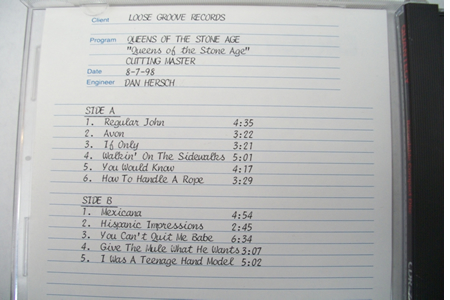 Client LOOSE GROOVE RECORDS
Program QUEENS OF THE STONE AGE
"Queens of the Stone Age"
CUTTING MASTER
Date 8-7-98
Engineer DAN HERSCH
SIDE A
1. Regular John 4:35
2. Avon 3:22
3. If Only 3:21
4. Walkin' On The Sidewalks 5:01
5. You Would Know 4:17
6. How To Handle A Rope 3:29
SIDE B
1. Mexicana 4:54
2. Hispanic Impressions 2:45
3. You Can't Quit Me Babe 6:34
4. Give The Mule What He Wants 3:07
5. I Was A Teenage Hand Model 5:02